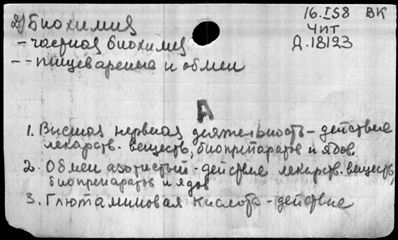 16.I58 ВК
2) Биохимия
Чит
– частная биохимия
Д.18123
– – пищеварение и обмен
А
1. Высшая нервная деятельность – действие
лекарств. веществ, биопрепаратов и ядов.
2. Обмен азотистый – действие лекарств. веществ,
биопрепаратов и ядов
3. Глютаминовая кислота – действие